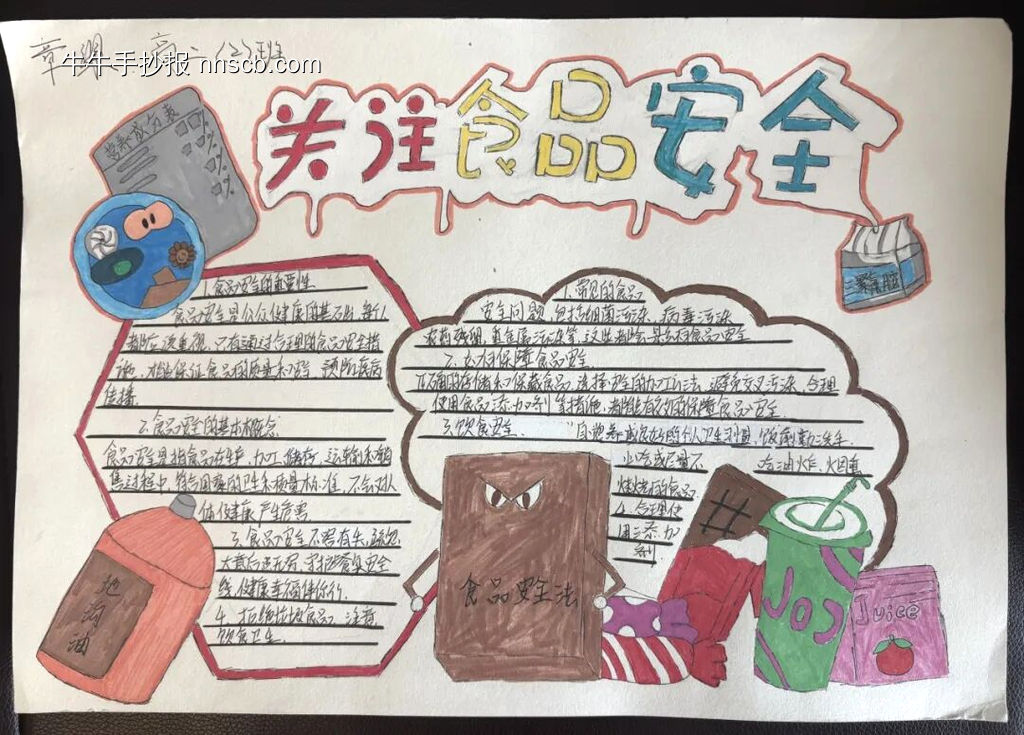 牛牛手抄报 nhscb.com
高二(2)班
关注食品安全
营养成分表
三聚氰胺
1.食品安全的重要性
食品安全是公众健康的基石,每个人
都应该重视,只有通过合理的食品安全措
施,才能保证食品的质量和安全,预防疾病
传播.
2.食品安全的基本概念
食品安全是指食品在生产,加工,储存,运输和销
售过程中,符合国家的卫生和质量标准,不会对人
体健康产生危害
3.食品安全不容有失,
线,健康幸福伴你行.
4.拒绝垃圾食品,注意
饮食卫生.
1.常见的食品
安全问题,包括细菌污染,病毒污染
农药残留,重金属污染等,这些都会影响食品安全
2.如何保障食品安全.
正确的存储和保藏食品,选择安全的加工方法,避免交叉污染,合理
使用食品添加剂等措施,都能有效的保障食品安全.
3.饮食安全. 自觉养成良好的个人卫生习惯,饭前勤洗手.
少吃或尽量不吃油炸,烟熏
烧烤的食品.
4.合理使
用添加
剂
地沟油
食品安全法
Joy
Juice